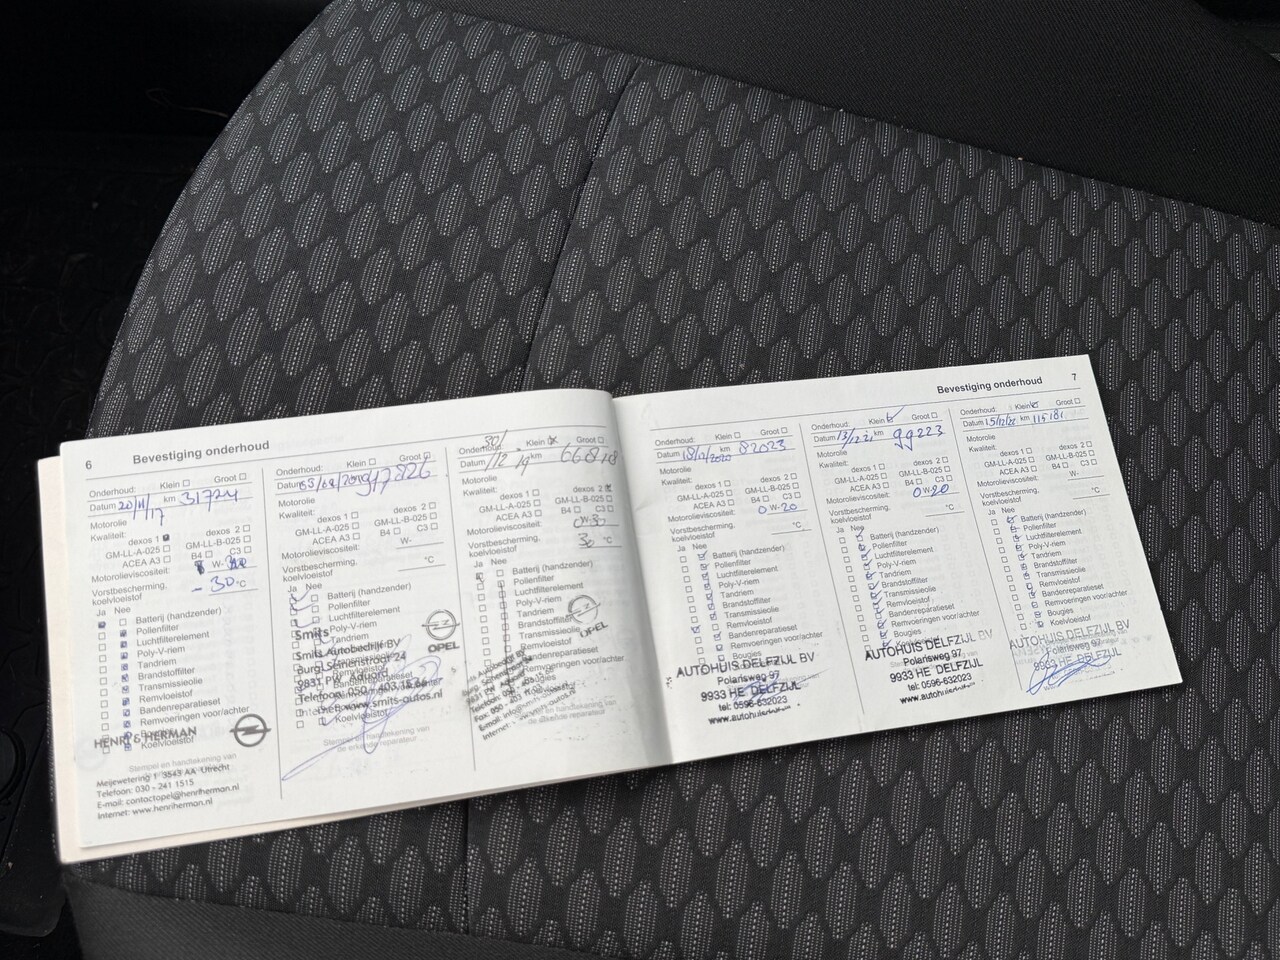 6 Bevestiging onderhoud
Onderhoud: Klein Groot
Datum 20/11/17 km 31724
Motorolie
Kwaliteit:
dexos 1 dexos 2
GM-LL-A-025 GM-LL-B-025
ACEA A3 B4 C3
Motorolieviscositeit: W-
Vorstbescherming, koelvloeistof -30 °C
Ja Nee
Batterij (handzender)
Pollenfilter
Luchtfilterelement
Poly-V-riem
Tandriem
Brandstoffilter
Transmissieolie
Remvloeistof
Bandenreparatieset
Remvoeringen voor/achter
Koelvloeistof
HENRI & HERMAN
Stempel en handtekening van
Meijewetering 1 3543 AA Utrecht
Telefoon: 030 - 241 1515
E-mail: contactopel@henriherman.nl
Internet: www.henriherman.nl
Onderhoud: Klein Groot
Datum
Motorolie
Kwaliteit:
dexos 1 dexos 2
GM-LL-A-025 GM-LL-B-025
ACEA A3 B4 C3
Motorolieviscositeit: W-
Vorstbescherming, koelvloeistof °C
Ja Nee
Batterij (handzender)
Pollenfilter
Luchtfilterelement
Poly-V-riem
Tandriem
Smits
OPEL
Smits Autobedrijf BV
9831 PW Aduard
www.smits-autos.nl
Koelvloeistof
Stempel en handtekening van
de erkende reparateur
Onderhoud: Klein Groot
Datum 30/12/19 km
Motorolie
Kwaliteit:
dexos 1 dexos 2
GM-LL-A-025 GM-LL-B-025
ACEA A3 B4 C3
Motorolieviscositeit: 0W-30
Vorstbescherming, koelvloeistof °C
Ja Nee
Batterij (handzender)
Pollenfilter
Luchtfilterelement
Poly-V-riem
Tandriem
Brandstoffilter
Transmissieolie
Remvloeistof
Bandenreparatieset
Remvoeringen voor/achter
OPEL
Bevestiging onderhoud 7
Onderhoud: Klein Groot
Datum 18/12/2020 km 82023
Motorolie
Kwaliteit:
dexos 1 dexos 2
GM-LL-A-025 GM-LL-B-025
ACEA A3 B4 C3
Motorolieviscositeit: 0W-20
Vorstbescherming, koelvloeistof °C
Ja Nee
Batterij (handzender)
Pollenfilter
Luchtfilterelement
Poly-V-riem
Tandriem
Brandstoffilter
Transmissieolie
Remvloeistof
Bandenreparatieset
Remvoeringen voor/achter
Bougies
AUTOHUIS DELFZIJL BV
Polarisweg 97
9933 HE DELFZIJL
tel: 0596-632023
Onderhoud: Klein Groot
Datum 13/12 21 km 99223
Motorolie
Kwaliteit:
dexos 1 dexos 2
GM-LL-A-025 GM-LL-B-025
ACEA A3 B4 C3
Motorolieviscositeit: 0W-20
Vorstbescherming, koelvloeistof °C
Ja Nee
Batterij (handzender)
Pollenfilter
Luchtfilterelement
Poly-V-riem
Tandriem
Brandstoffilter
Transmissieolie
Remvloeistof
Bandenreparatieset
Remvoeringen voor/achter
Bougies
AUTOHUIS DELFZIJL BV
Polarisweg 97
9933 HE DELFZIJL
tel: 0596-632023
Onderhoud: Klein Groot
Datum 15/12/22 km 115181
Motorolie
Kwaliteit:
dexos 1 dexos 2
GM-LL-A-025 GM-LL-B-025
ACEA A3 B4 C3
Motorolieviscositeit: W-
Vorstbescherming, koelvloeistof °C
Ja Nee
Batterij (handzender)
Pollenfilter
Luchtfilterelement
Poly-V-riem
Tandriem
Brandstoffilter
Transmissieolie
Remvloeistof
Bandenreparatieset
Remvoeringen voor/achter
Bougies
Koelvloeistof
AUTOHUIS DELFZIJL BV
Polarisweg 97
9933 HE DELFZIJL